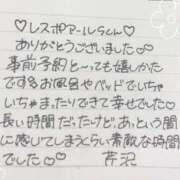 ♡レスポアールSくん♡
ありがとうございました♡
事前予約と〜っても嬉しかた
ですお風呂やベッドでいちゃ
いちゃまったりできて幸せでした♡
長い時間だったけど、あっという間
に感じてしまうくらい素敵な時間
でした♡ 芹沢